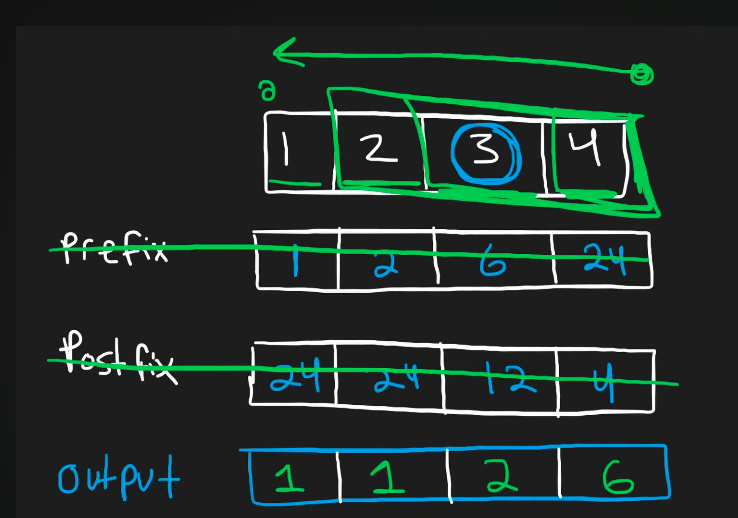 a
1 2 3 4
Prefix 1 2 6 24
Postfix 24 24 12 4
output 1 1 2 6